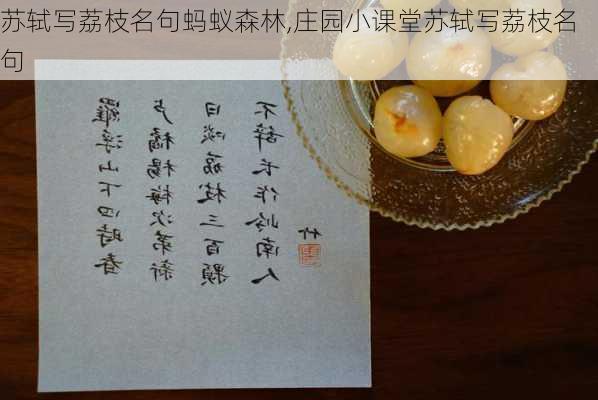 苏轼写荔枝名句蚂蚁森林,庄园小课堂苏轼写荔枝名
句
羅浮山下四時春
卢橘楊梅次第新
日啖荔枝三百顆
不辞长作岭南人
竹